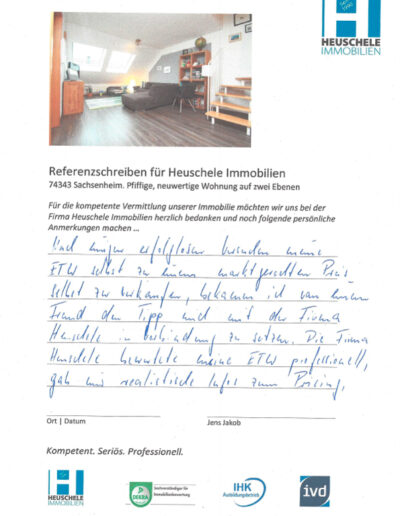 HEUSCHELE
IMMOBILIEN
Referenzschreiben für Heuschele Immobilien
74343 Sachsenheim. Pfiffige, neuwertige Wohnung auf zwei Ebenen
Für die kompetente Vermittlung unserer Immobilie möchten wir uns bei der
Firma Heuschele Immobilien herzlich bedanken und noch folgende persönliche
Anmerkungen machen ...
erfolgloser meine
ETW selbst zu einem marktgerechten Preis
selbst zu verkaufen, bekam ich von einem
Freund den Tipp mit der Firma
Heuschele in Verbindung zu setzen. Die Firma
Heuschele bewertete meine ETW professionell,
gab mir realistische Infos zum Pricing.
Ort | Datum Jens Jakob
Kompetent. Seriös. Professionell.
HEUSCHELE
IMMOBILIEN
DEKRA
Sachverständiger für
Immobilienbewertung
IHK
Ausbildungsbetrieb
ivd